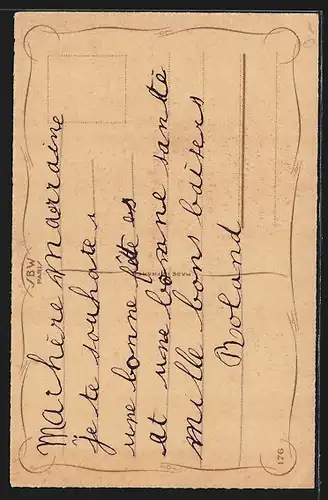 Ma chère marraine
je te souhate
une bonne fête es
at une bonne santé
mille bons baisers
Roland
BW
PARIS
176